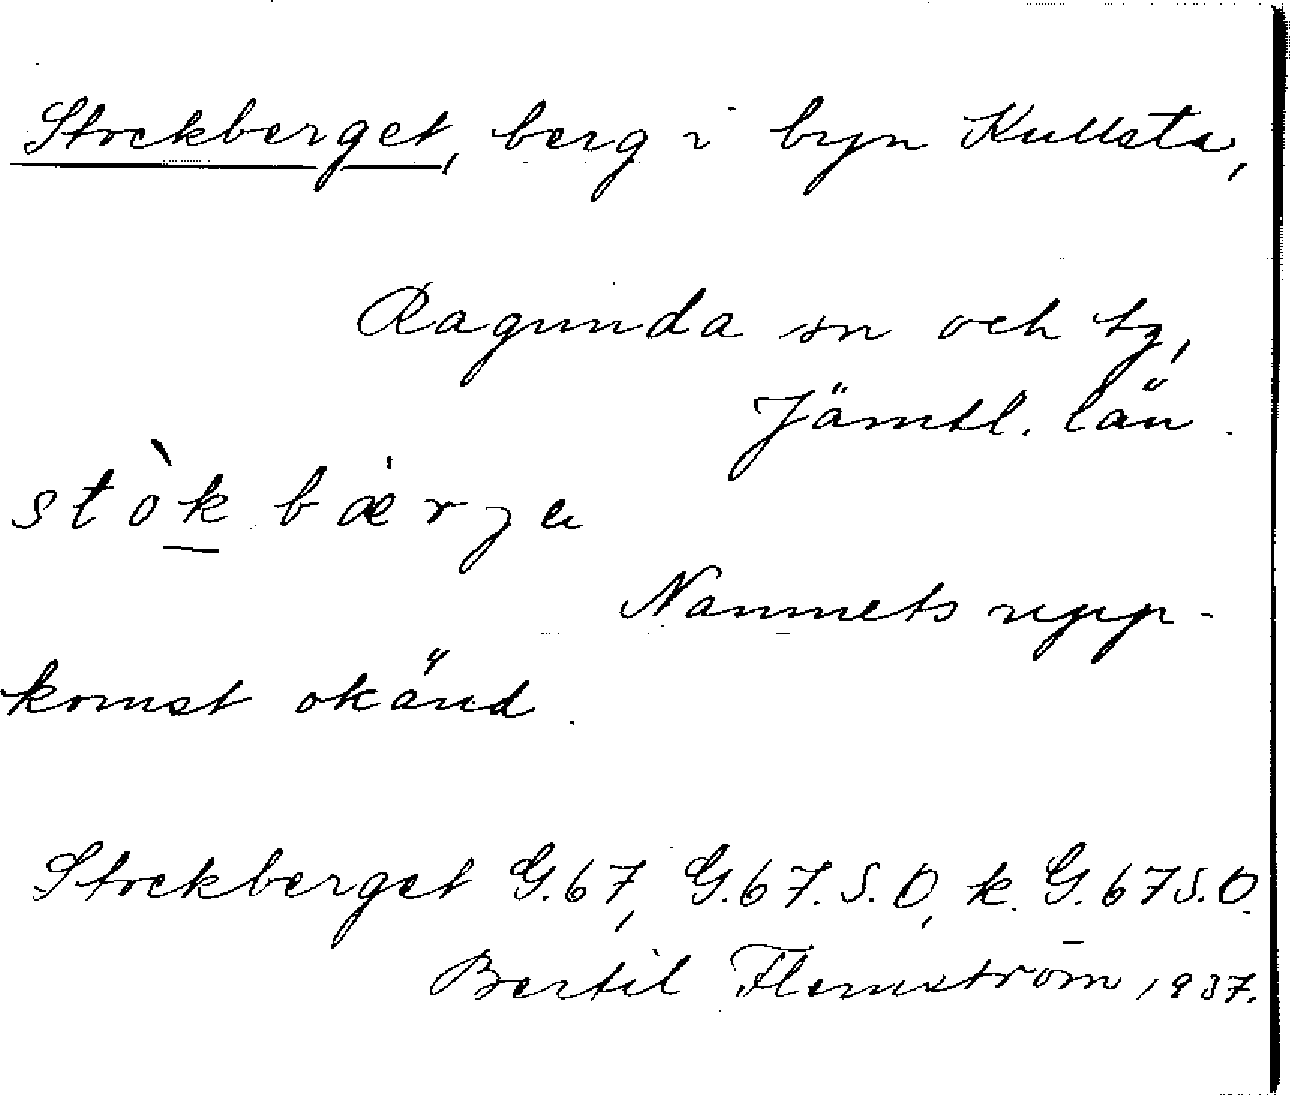 Stockberget, berg i byn Kullsta,
Ragunda sn och tg,
Jämtl. län.
stòk bærja
Namnets upp-
komst okänd.
Stockberget G.67, G.67.S.O, k. G.67S.O.
Bertil Flemström, 1937.